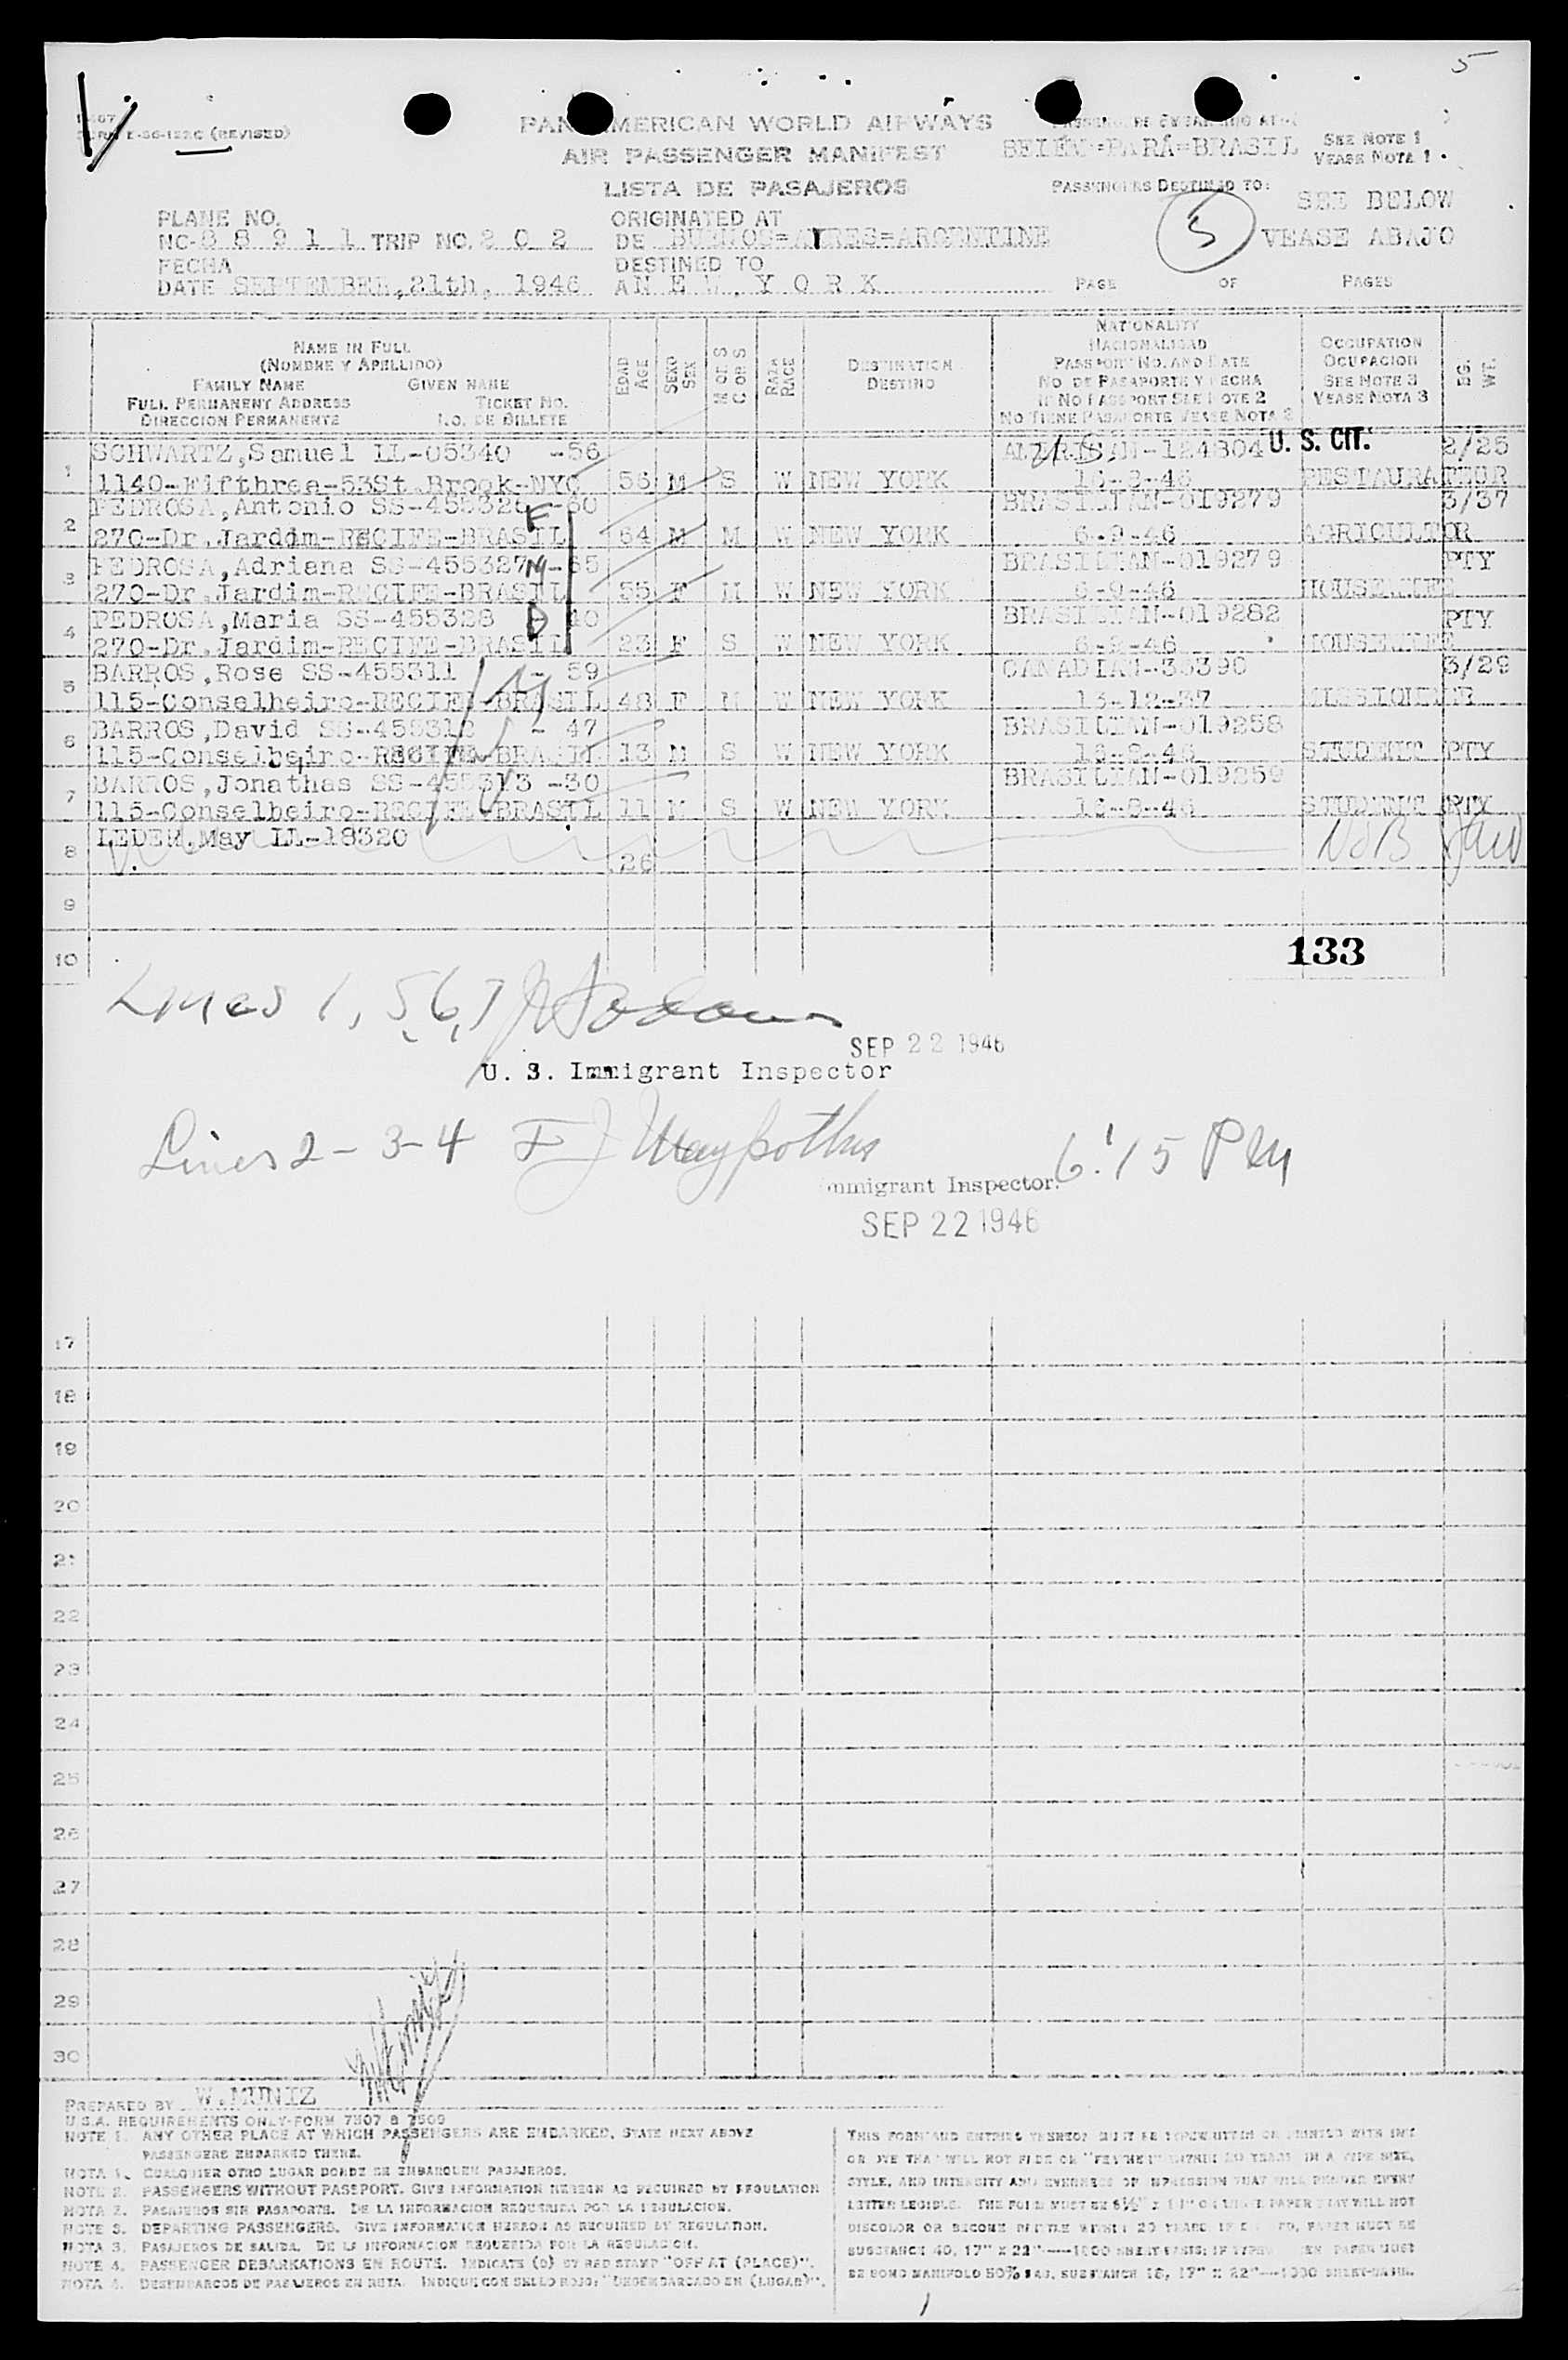 5
FORM E-36-122C (REVISED)
PAN AMERICAN WORLD AIRWAYS
AIR PASSENGER MANIFEST
LISTA DE PASAJEROS
BELEM=PARÁ=BRASIL
SEE NOTE 1
VEASE NOTA 1
PASSENGERS DESTINED TO:
SEE BELOW
5
VEASE ABAJO
PLANE NO.
NC-8 8 9 1 1 TRIP NO. 2 0 2
ORIGINATED AT
DE BUENOS=AIRES=ARGENTINE
FECHA
DATE SEPTEMBER,21th, 1946
DESTINED TO
A N E W . Y O R K
PAGE OF PAGES
NAME IN FULL
(NOMBRE Y APELLIDO)
FAMILY NAME GIVEN NAME
FULL PERMANENT ADDRESS TICKET NO.
DIRECCION PERMANENTE NO. DE BILLETE
EDAD
AGE
SEXO
SEX
M OR S
C OR S
RAZA
RACE
DESTINATION
DESTINO
NATIONALITY
NACIONALIDAD
PASSPORT NO. AND DATE
NO. DE PASAPORTE Y FECHA
IF NO PASSPORT SEE NOTE 2
NO TIENE PASAPORTE VEASE NOTA 2
OCCUPATION
OCUPACION
SEE NOTE 3
VEASE NOTA 3
BG.
WE.
SCHWARTZ,Samuel LL-05340 -56 AMERICAN-124804 U.S. U. S. CIT. 2/25
1 1140-Fifthrea-53St.Brook-NYC 56 M S W NEW YORK 16-8-46 RESTAURATEUR
PEDROSA,Antonio SS-455326 F -60 BRASILIAN-019279 3/37
2 270-Dr.Jardim-RECIFE-BRASIL 64 M M W NEW YORK 6-9-46 AGRICULTOR
PEDROSA,Adriana SS-455327 M -65 BRASILIAN-019279 PTY
3 270-Dr.Jardim-RECIFE-BRASIL 55 F M W NEW YORK 6-9-46 HOUSEWIFE
PEDROSA,Maria SS-455328 D 40 BRASILIAN-019282 PTY
4 270-Dr.Jardim-RECIFE-BRASIL 23 F S W NEW YORK 6-9-46 HOUSEWIFE
BARROS,Rose SS-455311 - 59 CANADIAN-33390 3/29
5 115-Conselheiro-RECIFE-BRASIL 48 F M W NEW YORK 13-12-37 MISSIONER
BARROS,David SS-455312 - 47 BRASILIAN-019258
6 115-Conselheiro-RECIFE-BRASIL 13 M S W NEW YORK 16-8-46 STUDENT PTY
BARROS,Jonathas SS-455313 -30 BRASILIAN-019259
7 115-Conselheiro-RECIFE-BRASIL 11 M S W NEW YORK 16-8-46 STUDENT PTY
LEDER,May LL-18320
8 26 NOB
9
10
133
Lines 1, 5, 6, 7
SEP 22 1946
U. S. Immigrant Inspector
Lines 2-3-4 6:15 PM
Immigrant Inspector.
SEP 22 1946
17
18
19
20
21
22
23
24
25
26
27
28
29
30
PREPARED BY W.MUNIZ
U.S.A. REQUIREMENTS ONLY-FORM 7507 & 7509
NOTE 1. ANY OTHER PLACE AT WHICH PASSENGERS ARE EMBARKED, STATE NEXT ABOVE
PASSENGERS EMBARKED THERE.
NOTA 1. CUALQUIER OTRO LUGAR DONDE SE EMBARQUEN PASAJEROS.
NOTE 2. PASSENGERS WITHOUT PASSPORT. GIVE INFORMATION HEREON AS REQUIRED BY REGULATION
NOTA 2. PASAJEROS SIN PASAPORTE. DE LA INFORMACION REQUERIDA POR LA REGULACION.
NOTE 3. DEPARTING PASSENGERS. GIVE INFORMATION HEREON AS REQUIRED BY REGULATION.
NOTA 3. PASAJEROS DE SALIDA. DE LA INFORMACION REQUERIDA POR LA REGULACION.
NOTE 4. PASSENGER DEBARKATIONS EN ROUTE. INDICATE (D) BY RED STAMP "OFF AT (PLACE)".
NOTA 4. DESEMBARCOS DE PASAJEROS EN RUTA. INDIQUE CON SELLO ROJO: "DESEMBARCADO EN (LUGAR)".
THIS FORM AND ENTRIES THEREON MUST BE TYPEWRITTEN OR PRINTED WITH INK
OR DYE THAT WILL NOT FADE OR "FEATHER" WITHIN 20 YEARS IN A TYPE SIZE,
STYLE, AND INTENSITY AND EVENNESS OF IMPRESSION THAT WILL RENDER EVERY
LETTER LEGIBLE. THE FORM MUST BE ON WHITE PAPER THAT WILL NOT
DISCOLOR OR BECOME BRITTLE WITHIN 20 YEARS. PAPER MUST BE
SUBSTANCE 40, 17" X 22"----1000 SHEET BASIS; PAPER MUST
BE BOND MANIFOLD 50% RAG, SUBSTANCE 16, 17" X 22"---1000 SHEET-BASIS.